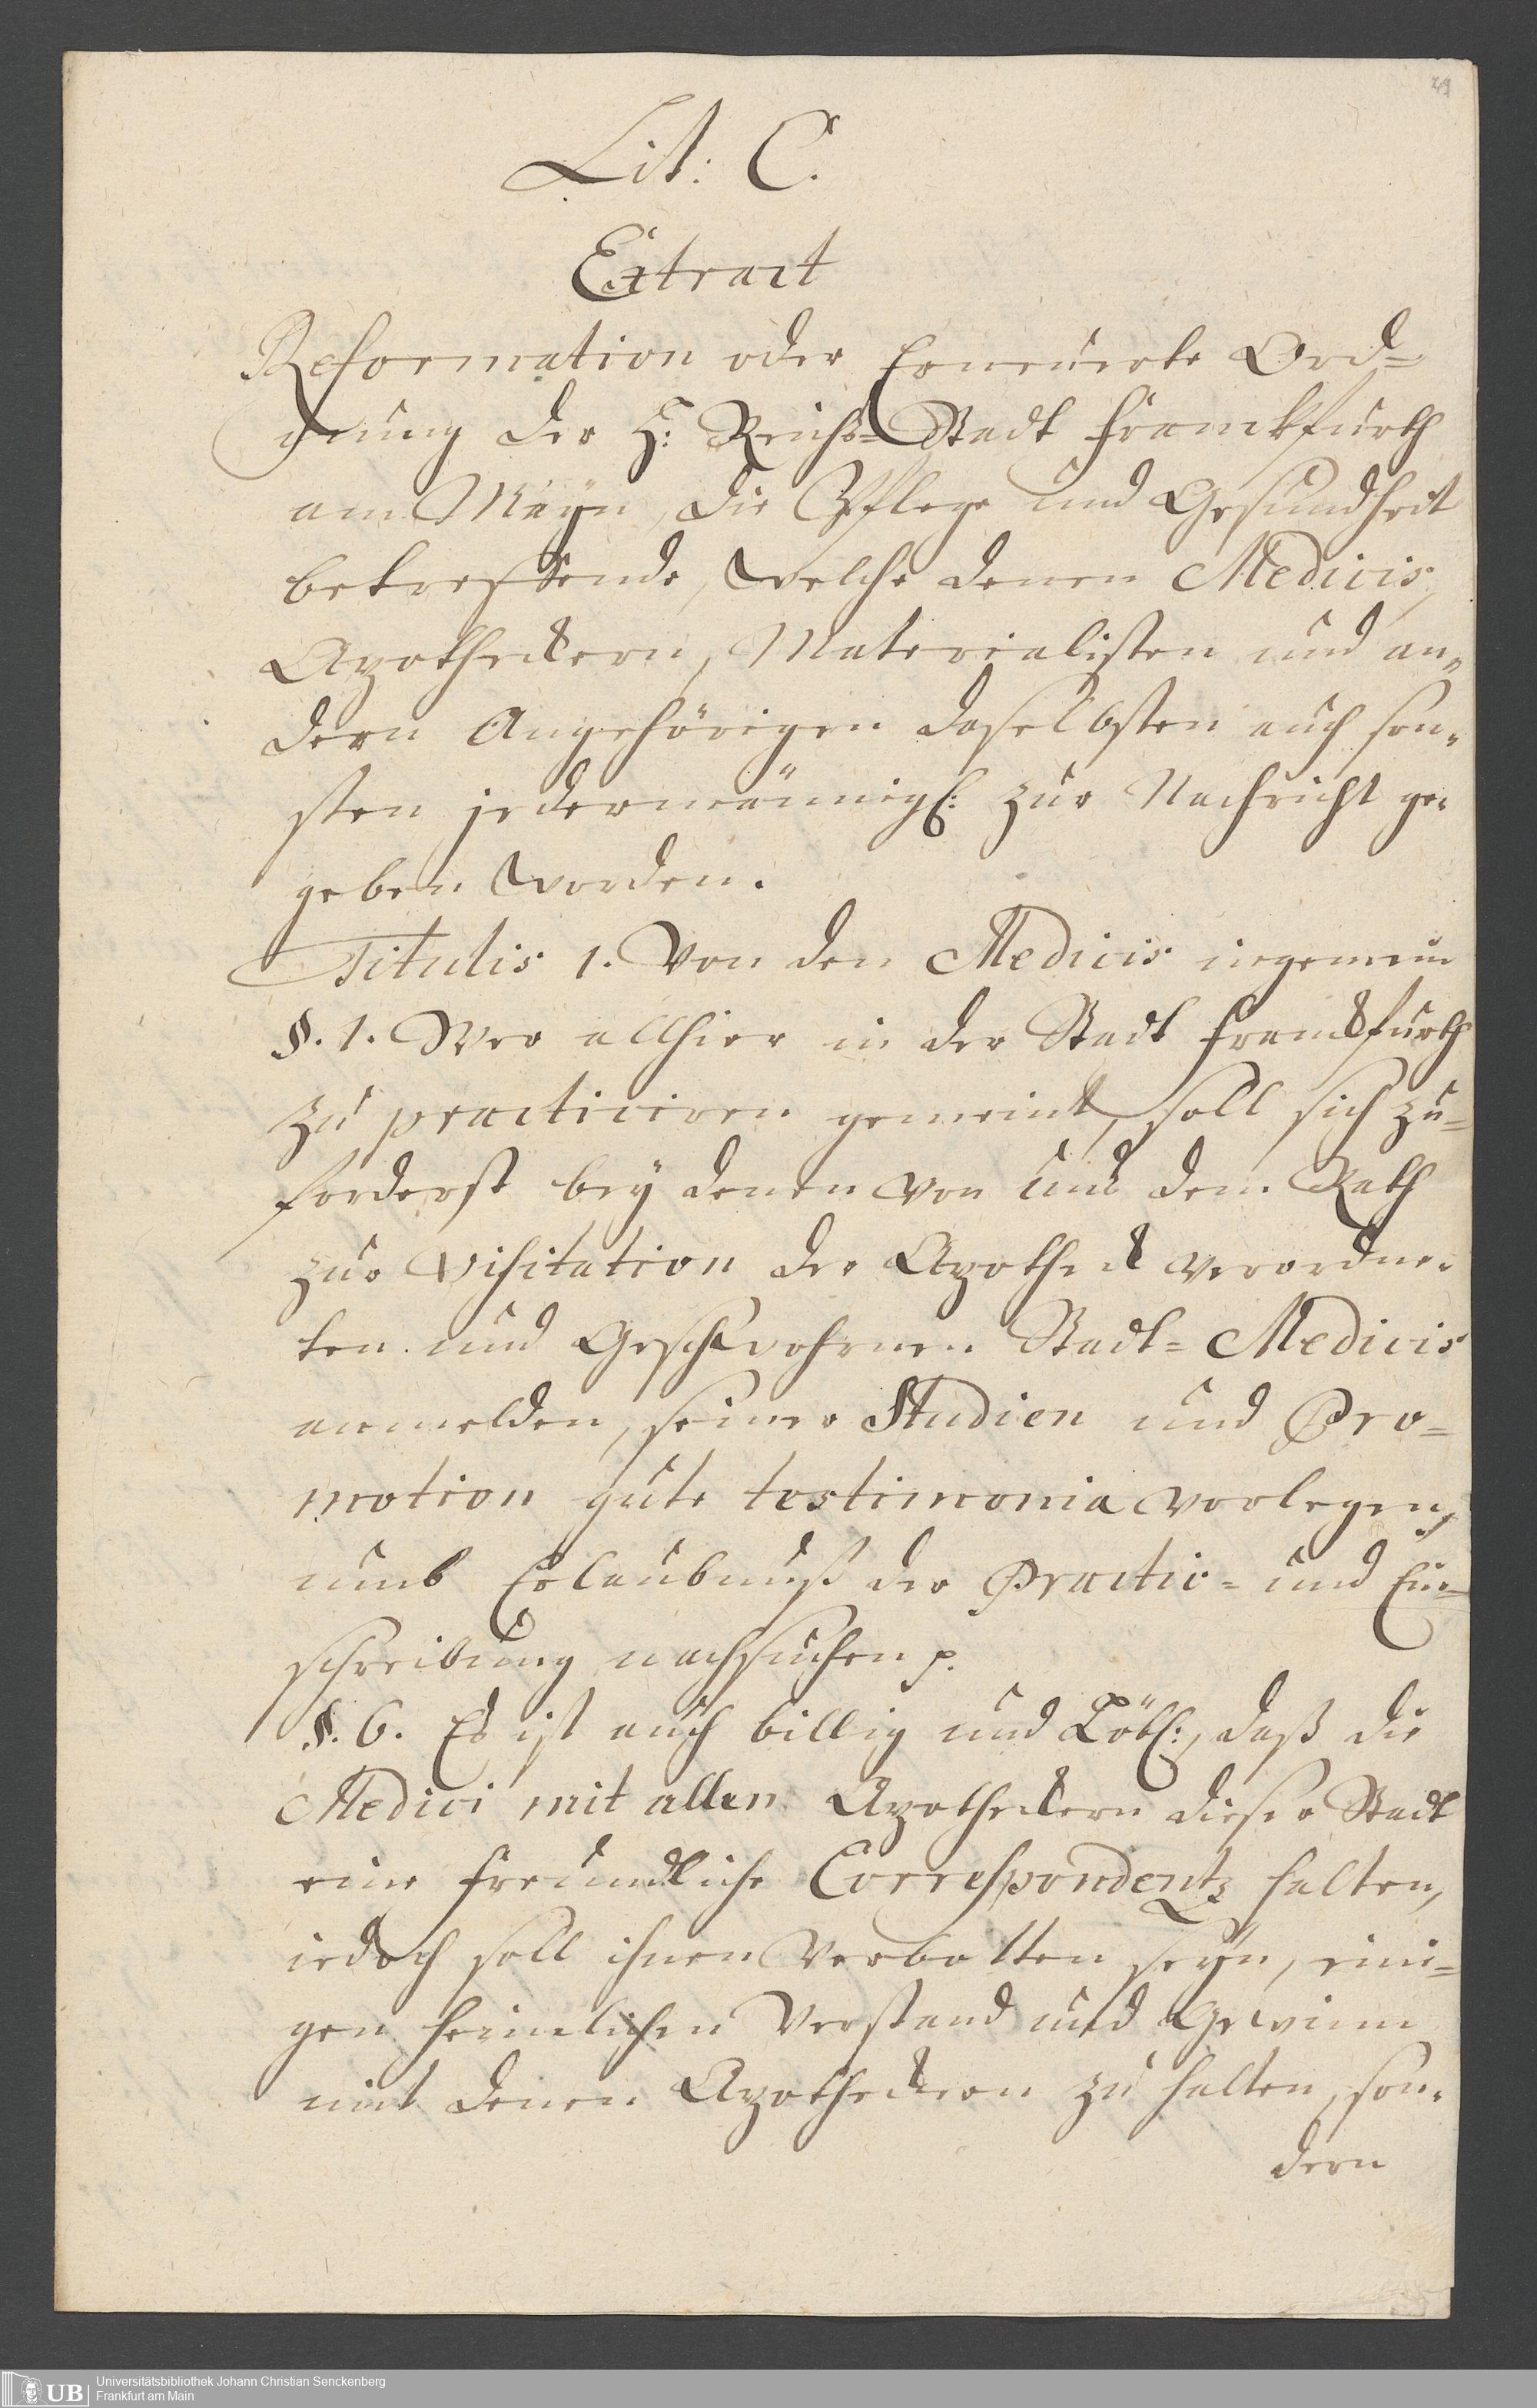 49
Lit: C.
Extract
Reformation oder Erneuerte Ord=
gnung der H: Reichs=Stadt Franckfurth
am Mayn, die Pflege und Gesundheit
betreffende, welche denen Medicis,
Apotheckern, Materialisten und an„
dern Angehörigen daselbsten auch son„
sten jedermännigl: zur Nachricht ge„
geben worden.
Titulis 1. Von den Medicis ingemein
§. 1. Wer allhier in der Stadt Franckfurth
zu practiciren gemeint, soll sich zu=
forderst bey denen von unß dem Rath
zur Visitation der Apotheck verordne„
ten und Geschwohrnen Stadt=Medicis
anmelden, seiner Studien und Pro=
motion gute testimonia vorlegen,
umb Erlaubnuß der Practic= und Ein=
schreibung nachsuchen p.
§. 6. Es ist auch billig und Löbl:, daß die
Medici mit allen Apotheckern dieser Stadt
eine freundliche Correspondentz halten,
iedoch soll ihnen verbotten seyn, eini=
gen heimlichen Verstand und Gewinn
mit denen Apotheckern zu halten, son„
dern
UB
Universitätsbibliothek Johann Christian Senckenberg
Frankfurt am Main